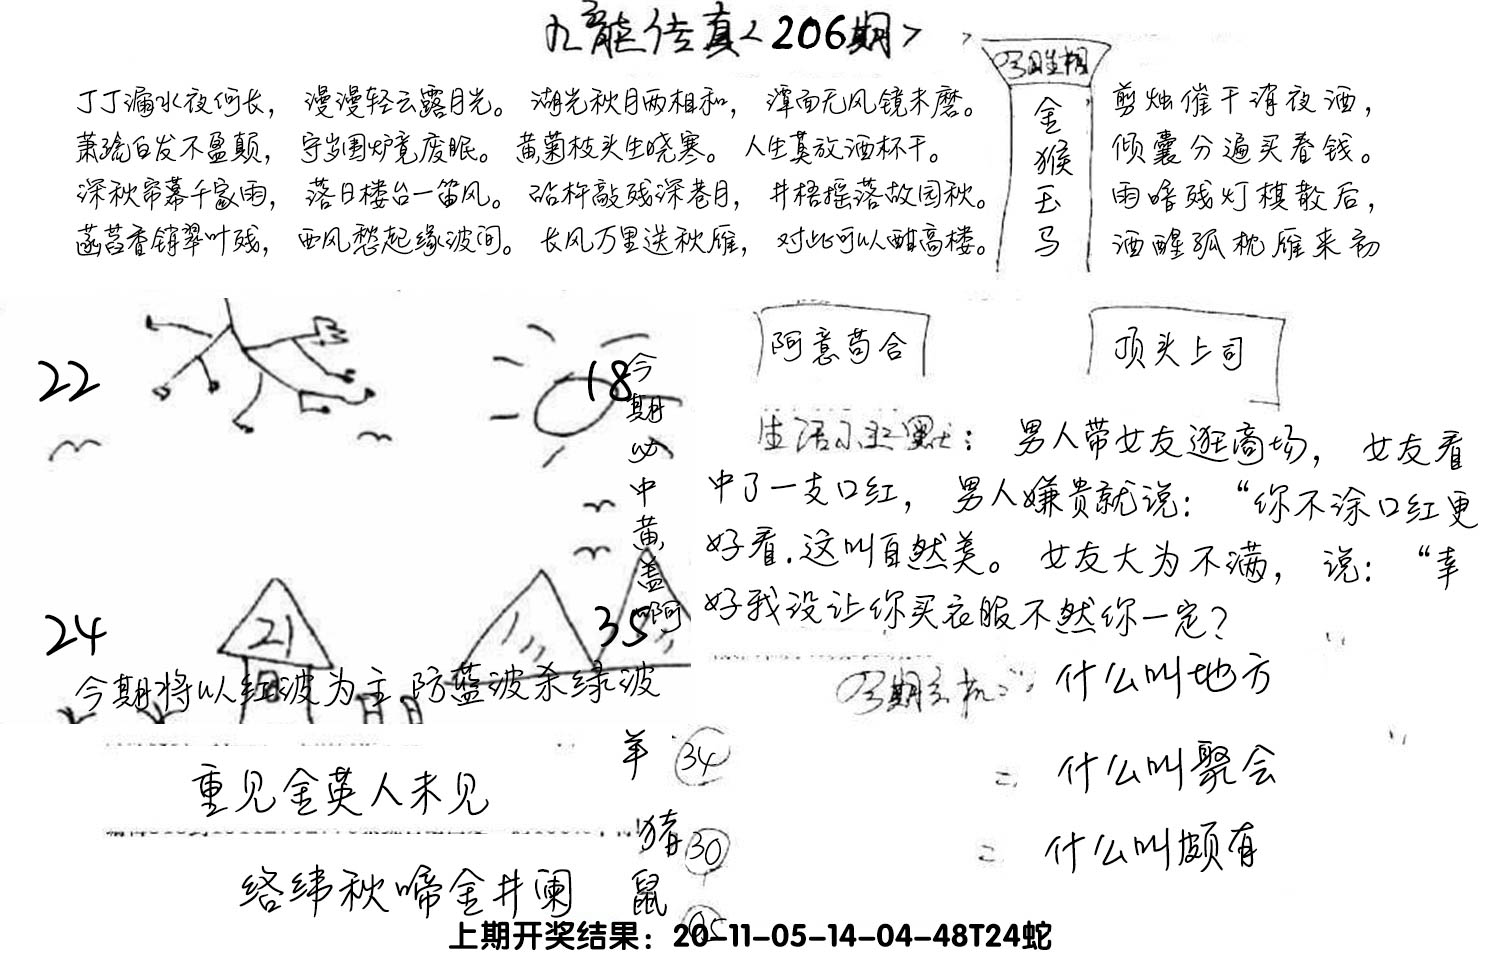 九龙传真<206期>
丁丁漏水夜何长， 漫漫轻云露月光。 湖光秋月两相和， 潭面无风镜未磨。
萧疏白发不盈颠， 守岁围炉竟废眠。 黄菊枝头生晓寒。 人生莫放酒杯干。
深秋帘幕千家雨， 落日楼台一笛风。 砧杵敲残深巷月， 井梧摇落故园秋。
菡萏香销翠叶残， 西风愁起绿波间。 长风万里送秋雁， 对此可以酣高楼。
金
猴
玉
马
剪烛催干消夜酒，
倾囊分遍买春钱。
雨暗残灯棋散后，
酒醒孤枕雁来初
22
18
24
21
35
今期必中黄盖啊
今期将以红波为主 防蓝波杀绿波
阿意苟合
顶头上司
生活小幽默： 男人带女友逛商场， 女友看
中了一支口红， 男人嫌贵就说：“你不涂口红更
好看.这叫自然美。 女友大为不满， 说：“幸
好我没让你买衣服不然你一定？
今期玄机: 什么叫地方
= 什么叫聚会
= 什么叫颇有
重见金英人未见
络纬秋啼金井阑
羊 34
猪 30
鼠 05
上期开奖结果：20-11-05-14-04-48T24蛇